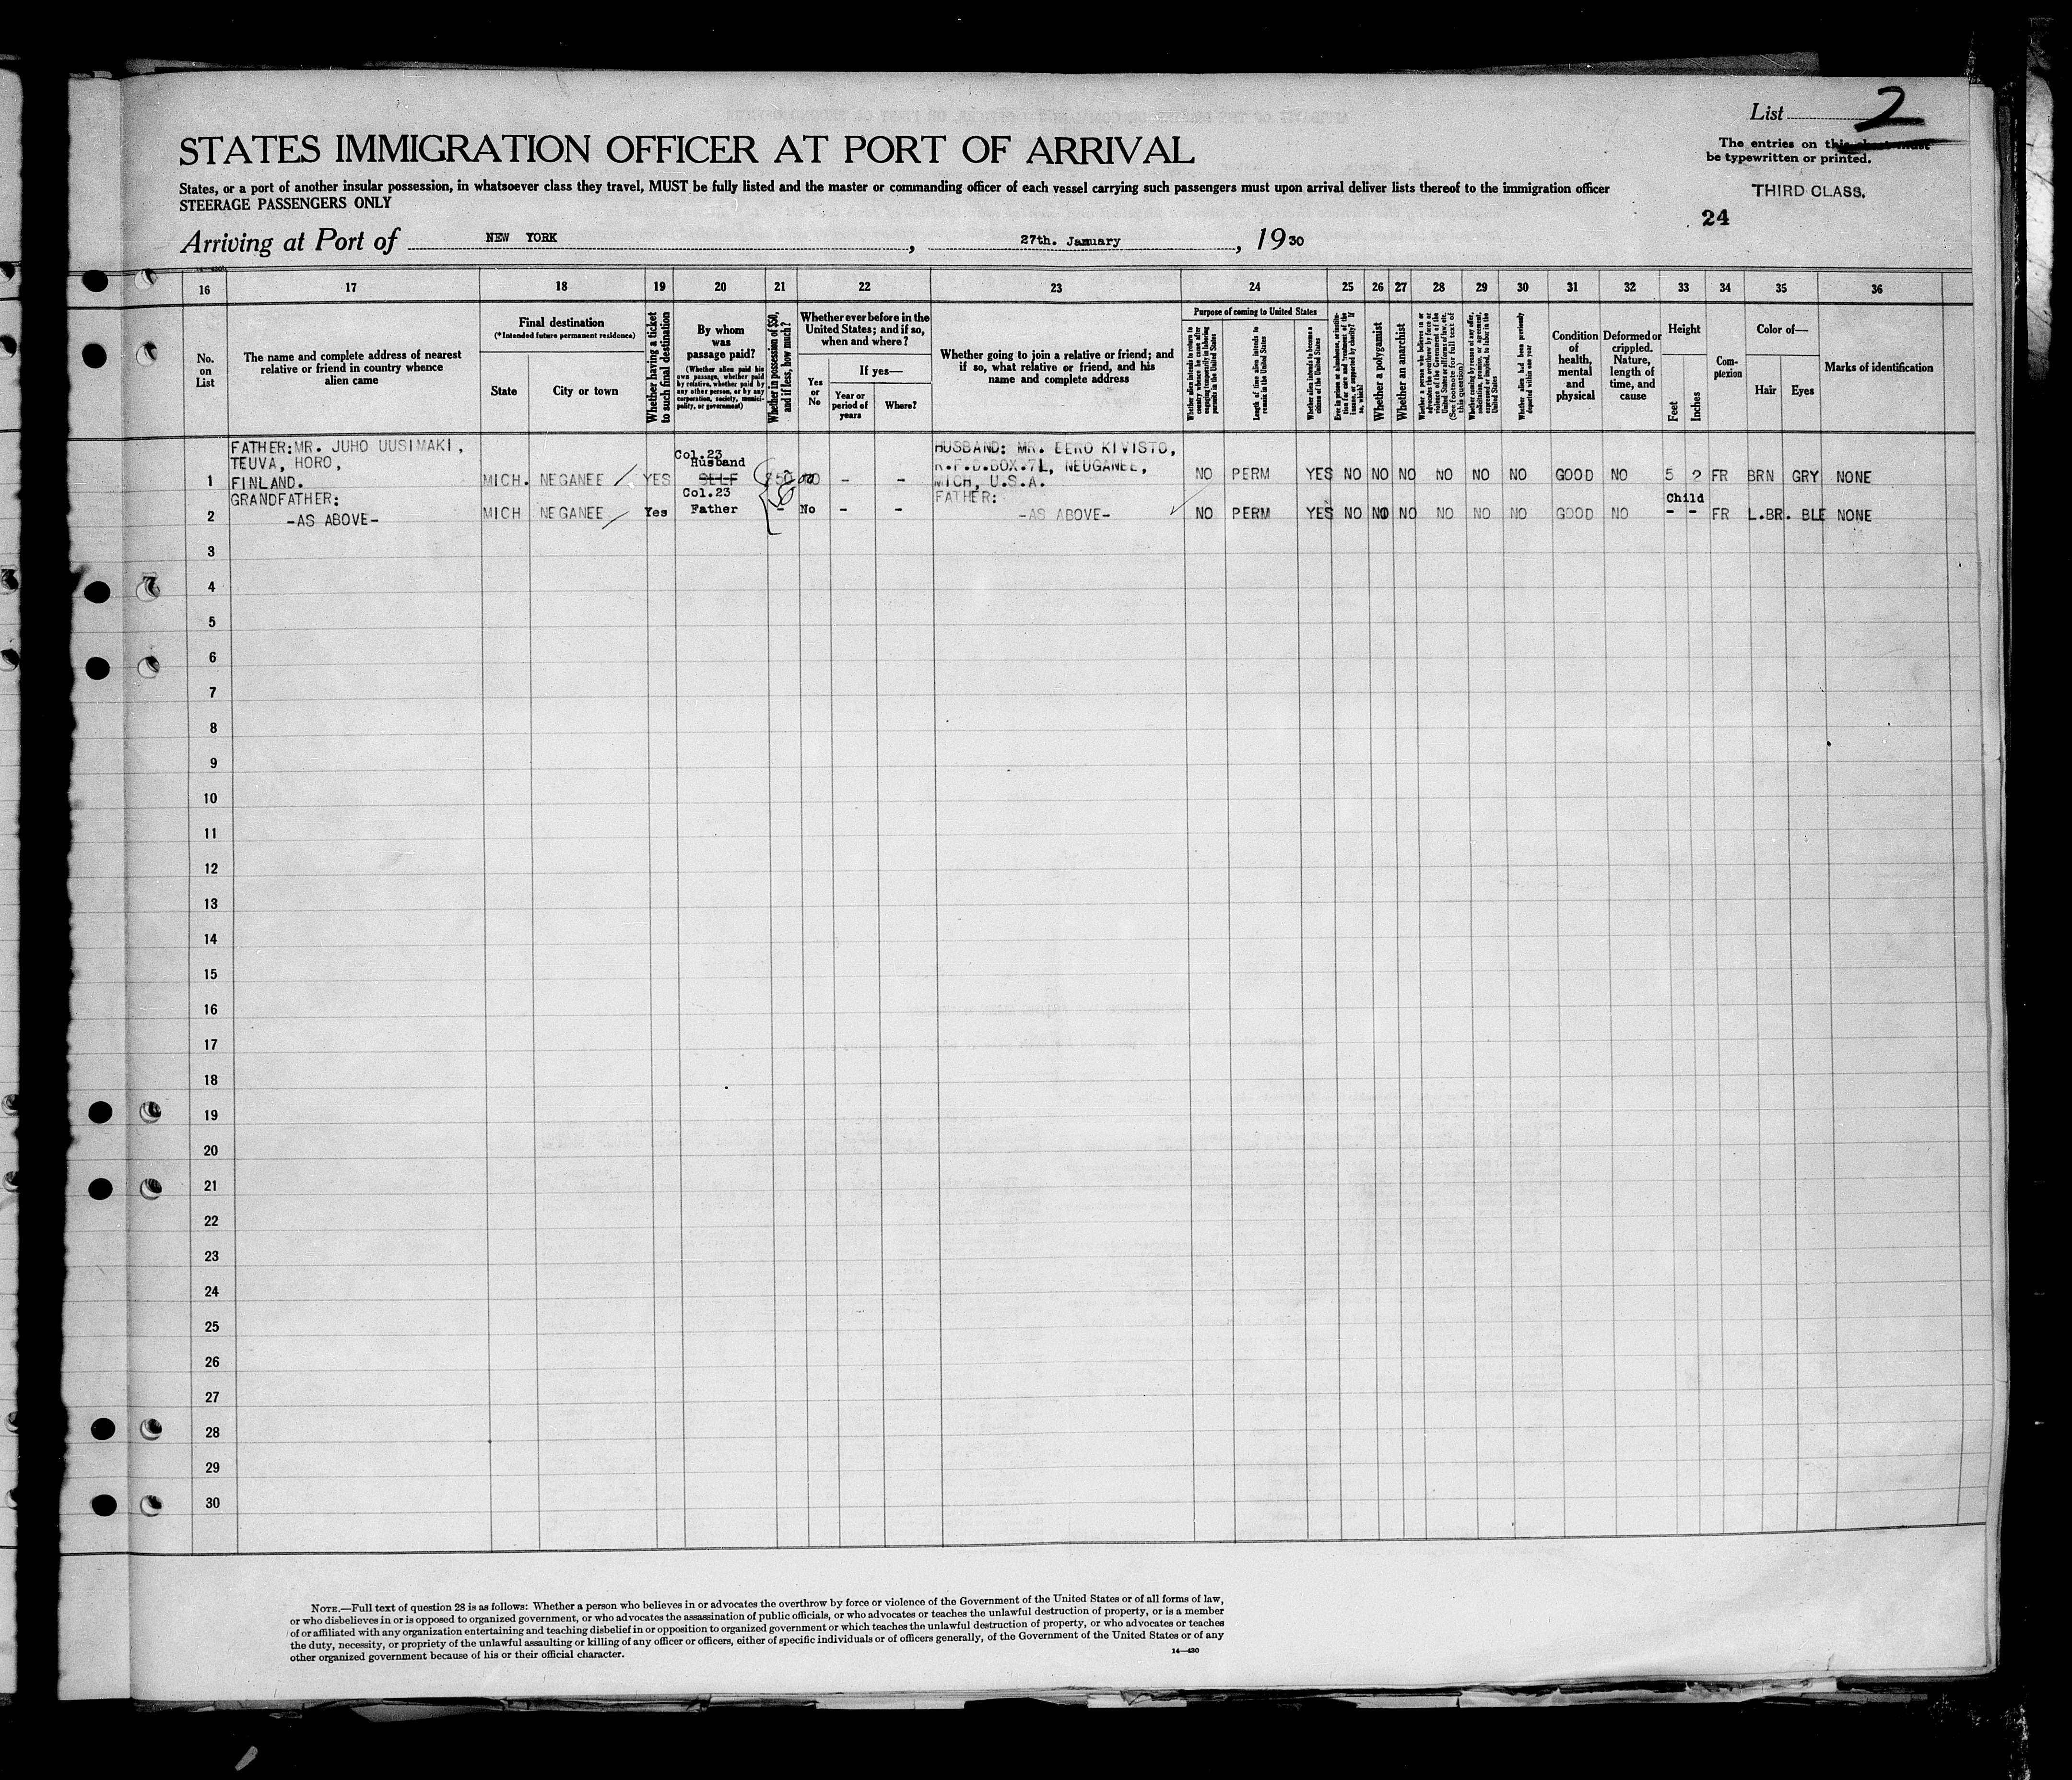 List 2
The entries on this sheet must
be typewritten or printed.
STATES IMMIGRATION OFFICER AT PORT OF ARRIVAL
States, or a port of another insular possession, in whatsoever class they travel, MUST be fully listed and the master or commanding officer of each vessel carrying such passengers must upon arrival deliver lists thereof to the immigration officer
STEERAGE PASSENGERS ONLY
THIRD CLASS.
24
Arriving at Port of NEW YORK, 27th. January, 1930
16 17 18 19 20 21 22 23 24 25 26 27 28 29 30 31 32 33 34 35 36
No.
on
List
The name and complete address of nearest
relative or friend in country whence
alien came
Final destination
(*Intended future permanent residence)
State
City or town
Whether having a ticket
to such final destination
By whom
was
passage paid?
(Whether alien paid his
own passage, whether paid
by relative, whether paid by
any other person, or by any
corporation, society, munici-
pality, or government)
Whether in possession of $50,
and if less, how much?
Whether ever before in the
United States; and if so,
when and where?
Yes
or
No
If yes—
Year or
period of
years
Where?
Whether going to join a relative or friend; and
if so, what relative or friend, and his
name and complete address
Purpose of coming to United States
Whether alien intends to return to
country whence he came after
engaging temporarily in laboring
pursuits in the United States
Length of time alien intends to
remain in the United States
Whether alien intends to become a
citizen of the United States
Ever in prison or almshouse, or institu-
tion for care and treatment of the
insane, or supported by charity? If
so, which?
Whether a polygamist
Whether an anarchist
Whether a person who believes in or
advocates the overthrow by force or
violence of the Government of the
United States or all forms of law, etc.
(See footnote for full text of
this question)
Whether coming by reason of any offer,
solicitation, promise, or agreement,
expressed or implied, to labor in the
United States
Whether alien had been previously
deported within one year
Condition
of
health,
mental
and
physical
Deformed or
crippled.
Nature,
length of
time, and
cause
Height
Feet
Inches
Com-
plexion
Color of—
Hair
Eyes
Marks of identification
FATHER:MR. JUHO UUSIMAKI,
TEUVA, HORO,
FINLAND.
1 MICH. NEGANEE YES
Col.23
Husband
SELF
$50 NO - -
HUSBAND: MR. EERO KIVISTO,
R.F.D.BOX.71, NEUGANEE,
MICH, U.S.A.
NO PERM YES NO NO NO NO NO NO GOOD NO 5 2 FR BRN GRY NONE
GRANDFATHER:
-AS ABOVE-
2 MICH NEGANEE Yes
Col.23
Father
- No - -
FATHER:
-AS ABOVE-
NO PERM YES NO NO NO NO NO NO GOOD NO
Child
- - FR L.BR. BLE NONE
3
4
5
6
7
8
9
10
11
12
13
14
15
16
17
18
19
20
21
22
23
24
25
26
27
28
29
30
NOTE.—Full text of question 28 is as follows: Whether a person who believes in or advocates the overthrow by force or violence of the Government of the United States or of all forms of law,
or who disbelieves in or is opposed to organized government, or who advocates the assassination of public officials, or who advocates or teaches the unlawful destruction of property, or is a member
of or affiliated with any organization entertaining and teaching disbelief in or opposition to organized government or which teaches the unlawful destruction of property, or who advocates or teaches
the duty, necessity, or propriety of the unlawful assaulting or killing of any officer or officers, either of specific individuals or of officers generally, of the Government of the United States or of any
other organized government because of his or their official character.
14—430